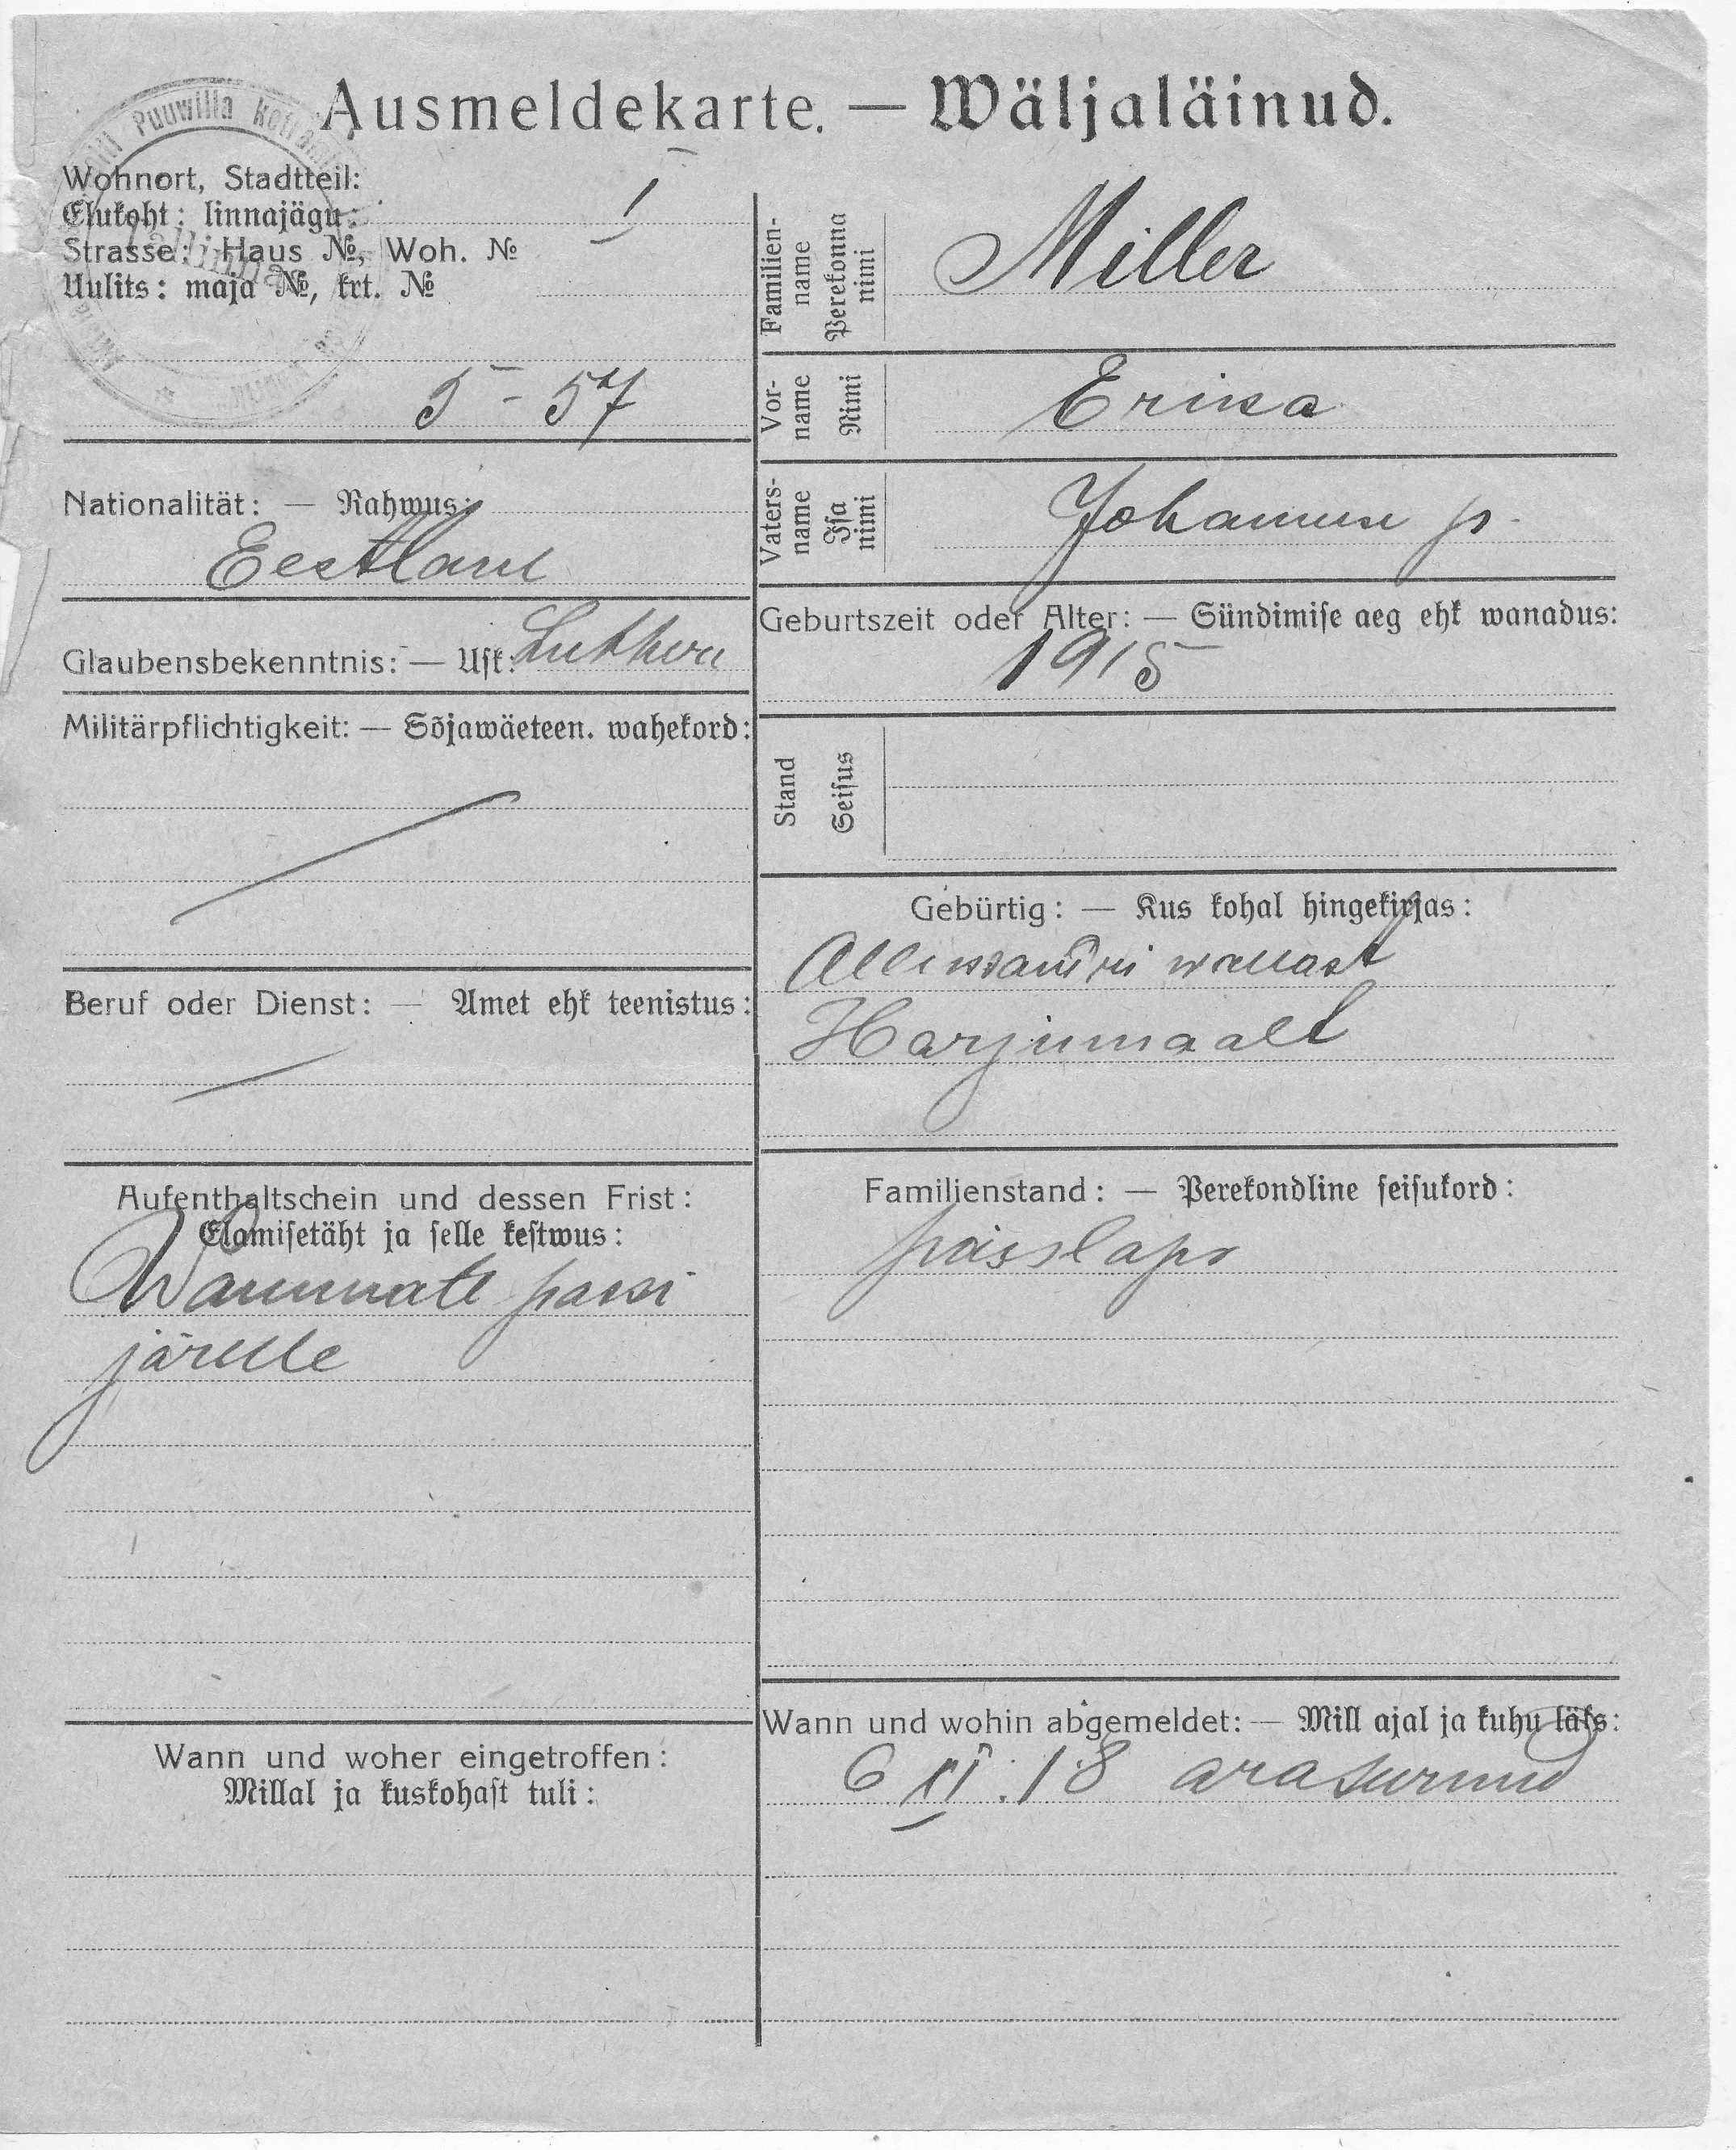 Ausmeldekarte. — Wäljaläinud.
Puuwilla
Tallinna
Wohnort, Stadtteil:
Elukoht: linnajägu:
Strasse: Haus №, Woh. №
Uulits: maja №, krt. №
5 - 57
Nationalität: — Rahwus:
Eestlane
Glaubensbekenntnis: — Usk: Lutheru
Militärpflichtigkeit: — Sõjawäeteen. wahekord:
Beruf oder Dienst: — Amet ehk teenistus:
Aufenthaltschein und dessen Frist:
Elamisetäht ja selle kestwus:
Wanemate passi
järelle
Wann und woher eingetroffen:
Millal ja kuskohast tuli:
Familien-
name
Perekonna
nimi
Miller
Vor-
name
Nimi
Erika
Vaters-
name
Isa
nimi
Johannese p.
Geburtszeit oder Alter: — Sündimise aeg ehk wanadus:
1915
Stand
Seisus
Gebürtig: — Kus kohal hingekirjas:
wallast
Harjumaalt
Familienstand: — Perekondline seisukord:
Wann und wohin abgemeldet: — Mill ajal ja kuhu läks:
6 XI. 18 arasurnud